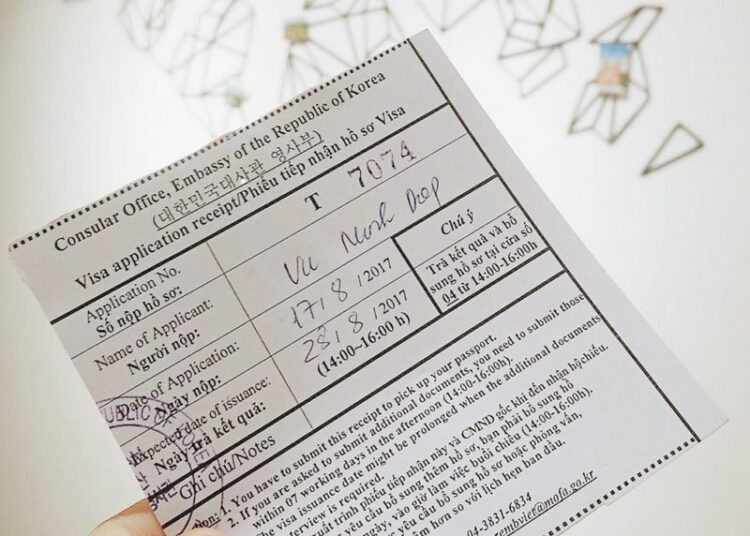 Consular Office, Embassy of the Republic of Korea
(대한민국대사관 영사부)
Visa application receipt/Phiếu tiếp nhận hồ sơ Visa
Application No.
Số nộp hồ sơ:
T 7074
Name of Applicant:
Người nộp:
Vu Ninh Diep
Date of Application:
Ngày nộp:
17/8/2017
Expected date of issuance:
Ngày trả kết quả:
28/8/2017
(14:00-16:00 h)
Chú ý
Trả kết quả và bổ
sung hồ sơ tại cửa số
04 từ 14:00-16:00h
Ghi chú/Notes
1. You have to submit this receipt to pick up your passport.
2. If you are asked to submit additional documents, you need to submit those
within 07 working days in the afternoon (14:00-16:00h).
The visa issuance date might be prolonged when the additional documents
interview is required.
xuất trình phiếu tiếp nhận này và CMND gốc khi đến nhận hộ chiếu.
yêu cầu bổ sung thêm hồ sơ, bạn phải bổ sung hồ
ngày, vào giờ làm việc buổi chiều (14:00-16:00h).
yêu cầu bổ sung hồ sơ hoặc phỏng vấn,
hơn so với lịch hẹn ban đầu.
04-3831-6834
@mofa.go.kr